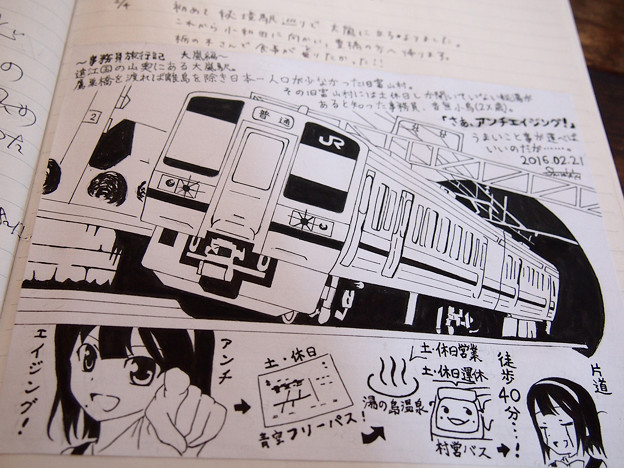 2/4
初めて秘境駅巡りで大嵐に来るよりました。
これから小和田に向かい、豊橋の方へ帰ります。
～事務員旅行記 大嵐編～
遠江国の山奥にある大嵐駅。
鷹巣橋を渡れば離島を除き日本一人口が少なかった旧富山村。
その旧富山村には土休日しか開いていない秘湯が
あると知った事務員、音無小鳥(2X歳)。
「さぁ、アンチエイジング!」
うまいこと事が運べば
いいのだが………。
2016.02.21
2
普通
JR
アンチ
エイジング!
土・休日
青空フリーパス!
湯の島温泉
土・休日営業
土・休日運休
村営バス
徒歩40分…!
片道